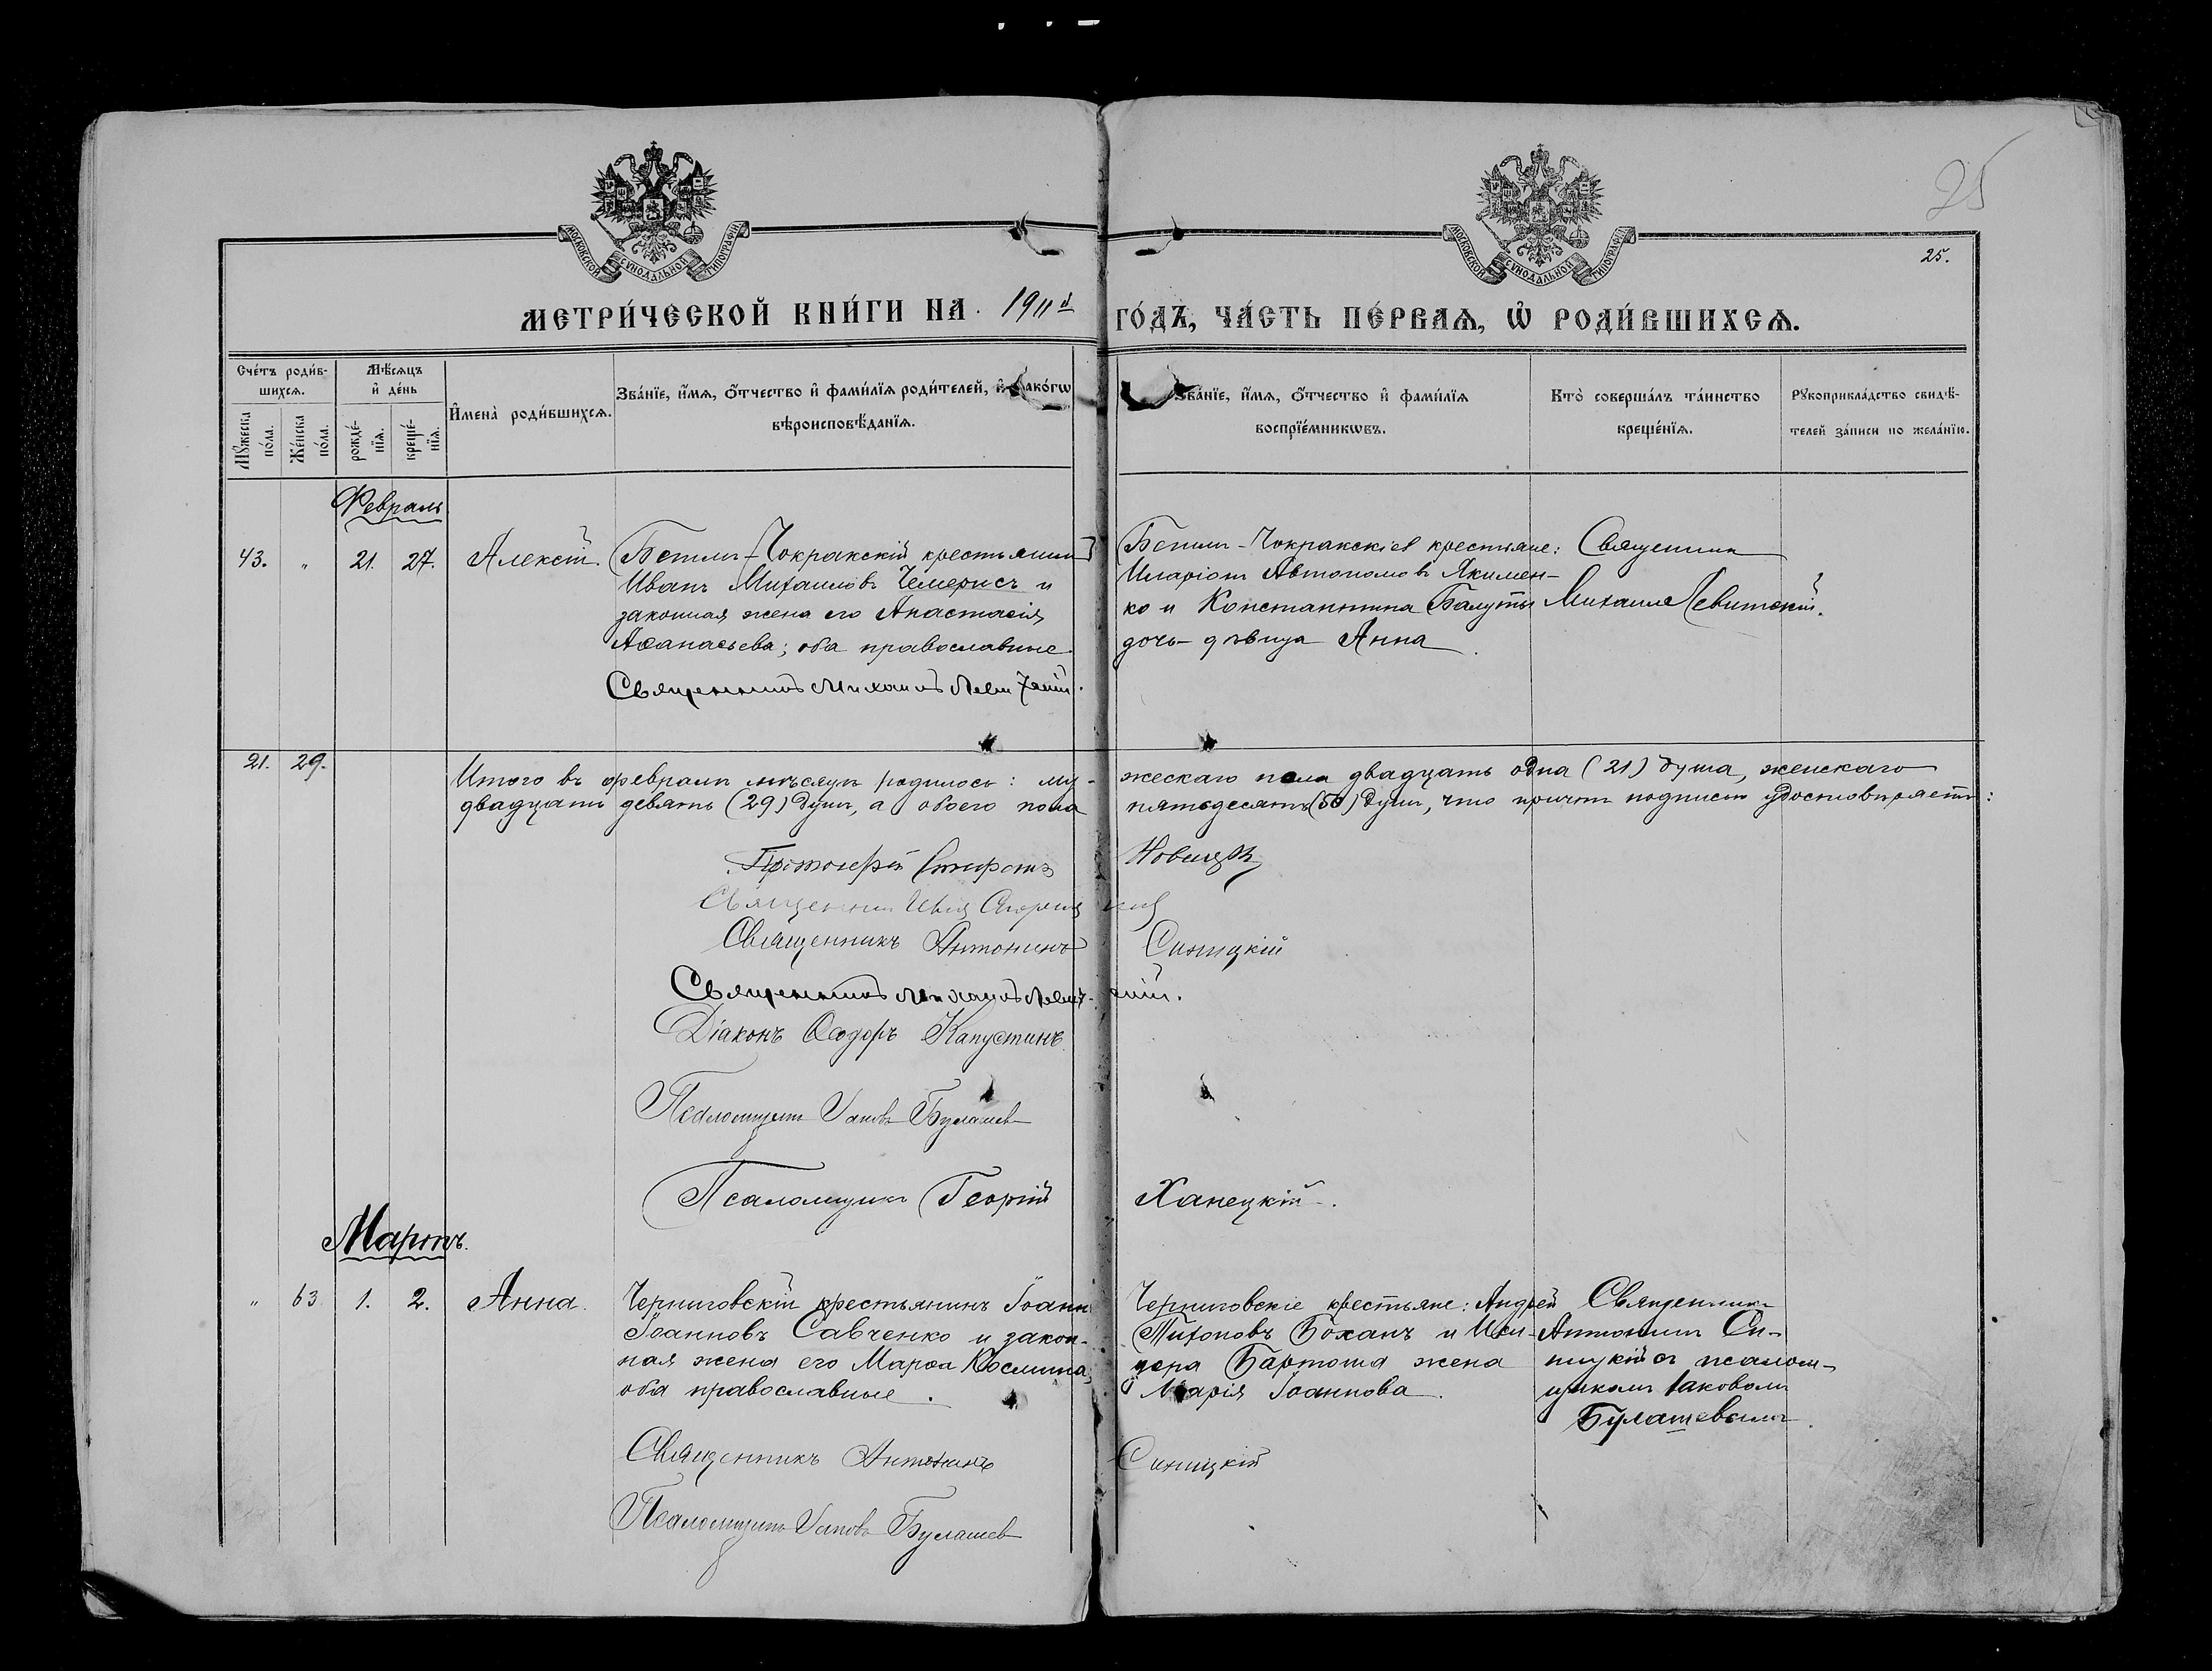 25
МОСКОВСКОЙ СѴНОДАЛЬНОЙ ТИПОГРАФІИ
МОСКОВСКОЙ СѴНОДАЛЬНОЙ ТИПОГРАФІИ
25.
МЕТРИ́ЧЕСКОЙ КНИ́ГИ НА 1911й ГО́ДЪ, ЧА́СТЬ ПЕ́РВАѦ, Ѡ҆ РОДИ́ВШИХСѦ.
Сче́тъ роди́в-
шихсѧ.
Мꙋ́жеска по́ла.
Же́нска по́ла.
Мѣ́сѧцъ
и҆ де́нь
рожде́-нїѧ.
креще́-нїѧ.
И҆мена̀ роди́вшихсѧ.
Зва́нїе, и҆́мѧ, ѻ҆́тчество и҆ фами́лїѧ роди́телей, и҆ како́гѡ
вѣроисповѣ́данїѧ.
Зва́нїе, и҆́мѧ, ѻ҆́тчество и҆ фами́лїѧ
воспрїе́мникѡвъ.
Кто̀ соверша́лъ та́инство
креще́нїѧ.
Рꙋкоприкла́дство свидѣ́-
телей за́писи по жела́нїю.
Февраль
43. " 21. 27. Алексій.
Бешли-Чокракскій крестьянинъ
Иванъ Михаиловъ Чемерисъ и
законная жена его Анастасія
Аѳанасьева; оба православные.
Священникъ Михаилъ Левитскій.
Бешли-Чокракскіе крестьяне:
Иларіонъ Автономовъ Якимен-
ко и Константина Балуты
дочь-дѣвица Анна
Священникъ
Михаилъ Левитскій.
21. 29.
Итого въ февралѣ мѣсяцѣ родилось: му- жескаго пола двадцать одна (21) душа, женскаго
двадцать девять (29) душъ, а обоего пола пятьдесятъ (50) душъ, что причтъ подписью удостовѣряетъ:
Протоіерей Новицкій
Священникъ
Священникъ Антонинъ Синицкій
Священникъ Михаилъ Левитскій.
Діаконъ Ѳеодоръ Капустинъ.
Псаломщикъ Іаковъ Булашев
Псаломщикъ Георгій Ханецкій.
Мартъ.
" 63 1. 2. Анна.
Черниговскій крестьянинъ Іоаннъ
Іоанновъ Савченко и закон-
ная жена его Марѳа Косьмина,
оба православные.
Черниговскіе крестьяне: Андрей
Тихоновъ Боханъ и Иси-
дора Бартоша жена
Марія Іоаннова.
Священникъ
Антонинъ Си-
ницкій съ псалом-
щикомъ Іаковомъ
Булашевымъ.
Священникъ Антонинъ Синицкій
Псаломщикъ Іаковъ Булашев